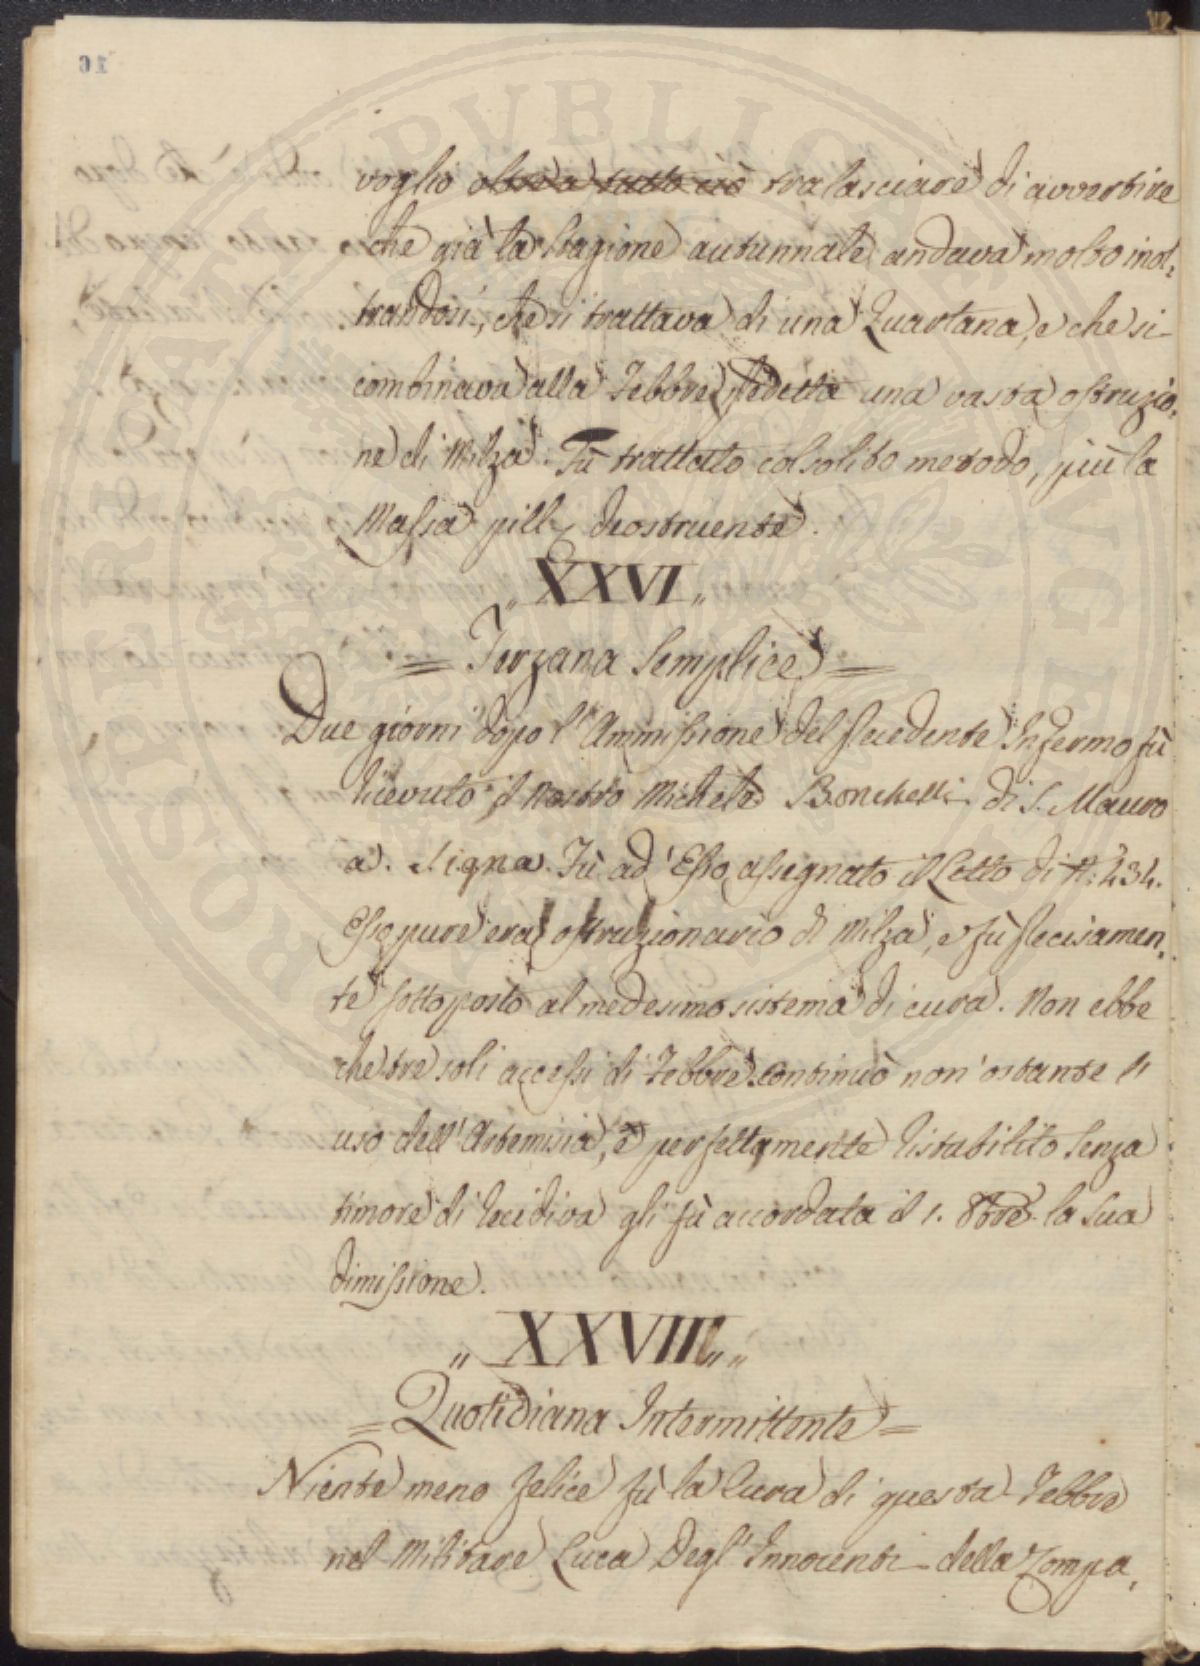 voglio oltre a tutto ciò tralasciare di avvertire
che già la stagione autunnale andava molto inol,
trandosi, che si trattava di una Quartana, e che si
combinava alla Febbre sud.etta una vasta ostruzio,
ne di Milza. Fù trattato col solito metodo, più la
Massa pill. deostruente.
„ XXVI „
= Terzana Semplice =
Due giorni dopo l' Ammissione del precedente Infermo fù
ricevuto il nostro Michele Bonchelli di S. Mauro
a Signa. Fù ad Esso assegnato il Letto di N.: 434.
Esso pure era ostruzionario di Milza, e fù precisamen,
te sottoposto al medesimo sistema di cura. Non ebbe
che tre soli accessi di Febbre. Continuò non ostante l'
uso dell' Artemisia, e perfettamente ristabilito senza
timore di recidiva gli fù accordata il 1. 8bre. la sua
dimissione.
„ XXVIII „
= Quotidiana Intermittente =
Niente meno felice fù la Cura di questa Febbre
nel Militare Luca Degl' Innocenti della Compa,